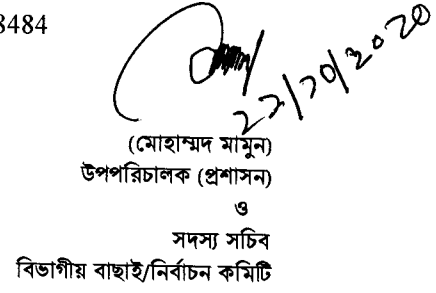 8484
২২/১০/২০২০
(মোহাম্মদ মামুন)
উপপরিচালক (প্রশাসন)
ও
সদস্য সচিব
বিভাগীয় বাছাই/নির্বাচন কমিটি